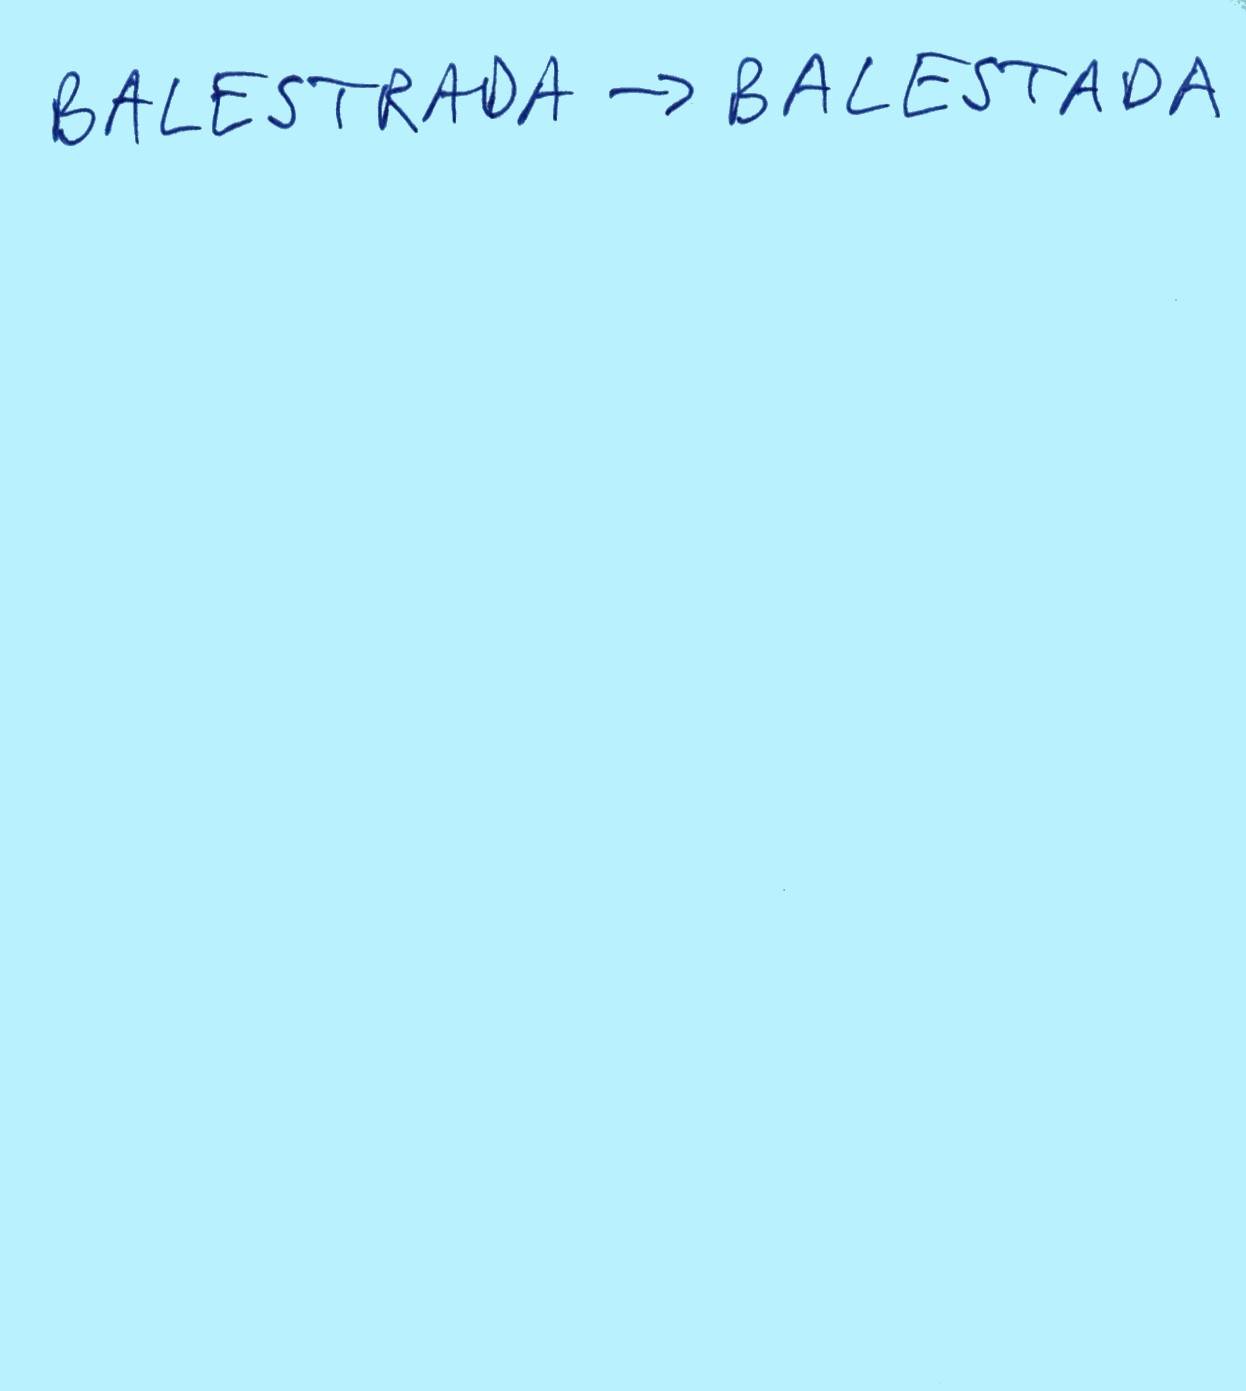 BALESTRADA → BALESTADA